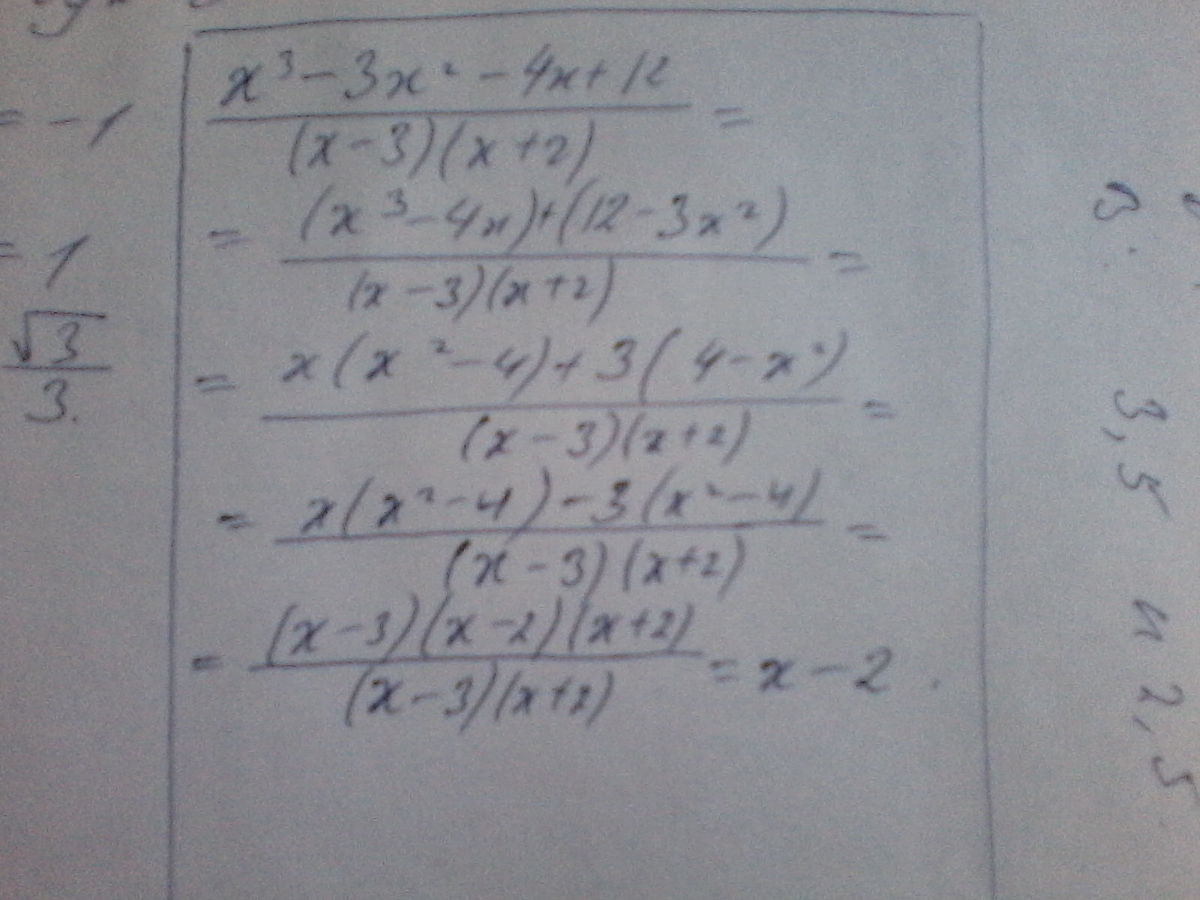 = -1
= 1
√3
3.
x³ - 3x² - 4x + 12
(x - 3)(x + 2)
=
= (x³ - 4x) + (12 - 3x²)
(x - 3)(x + 2)
=
= x(x² - 4) + 3(4 - x²)
(x - 3)(x + 2)
=
= x(x² - 4) - 3(x² - 4)
(x - 3)(x + 2)
=
= (x - 3)(x - 2)(x + 2)
(x - 3)(x + 2)
= x - 2.
3,5
и 2,5